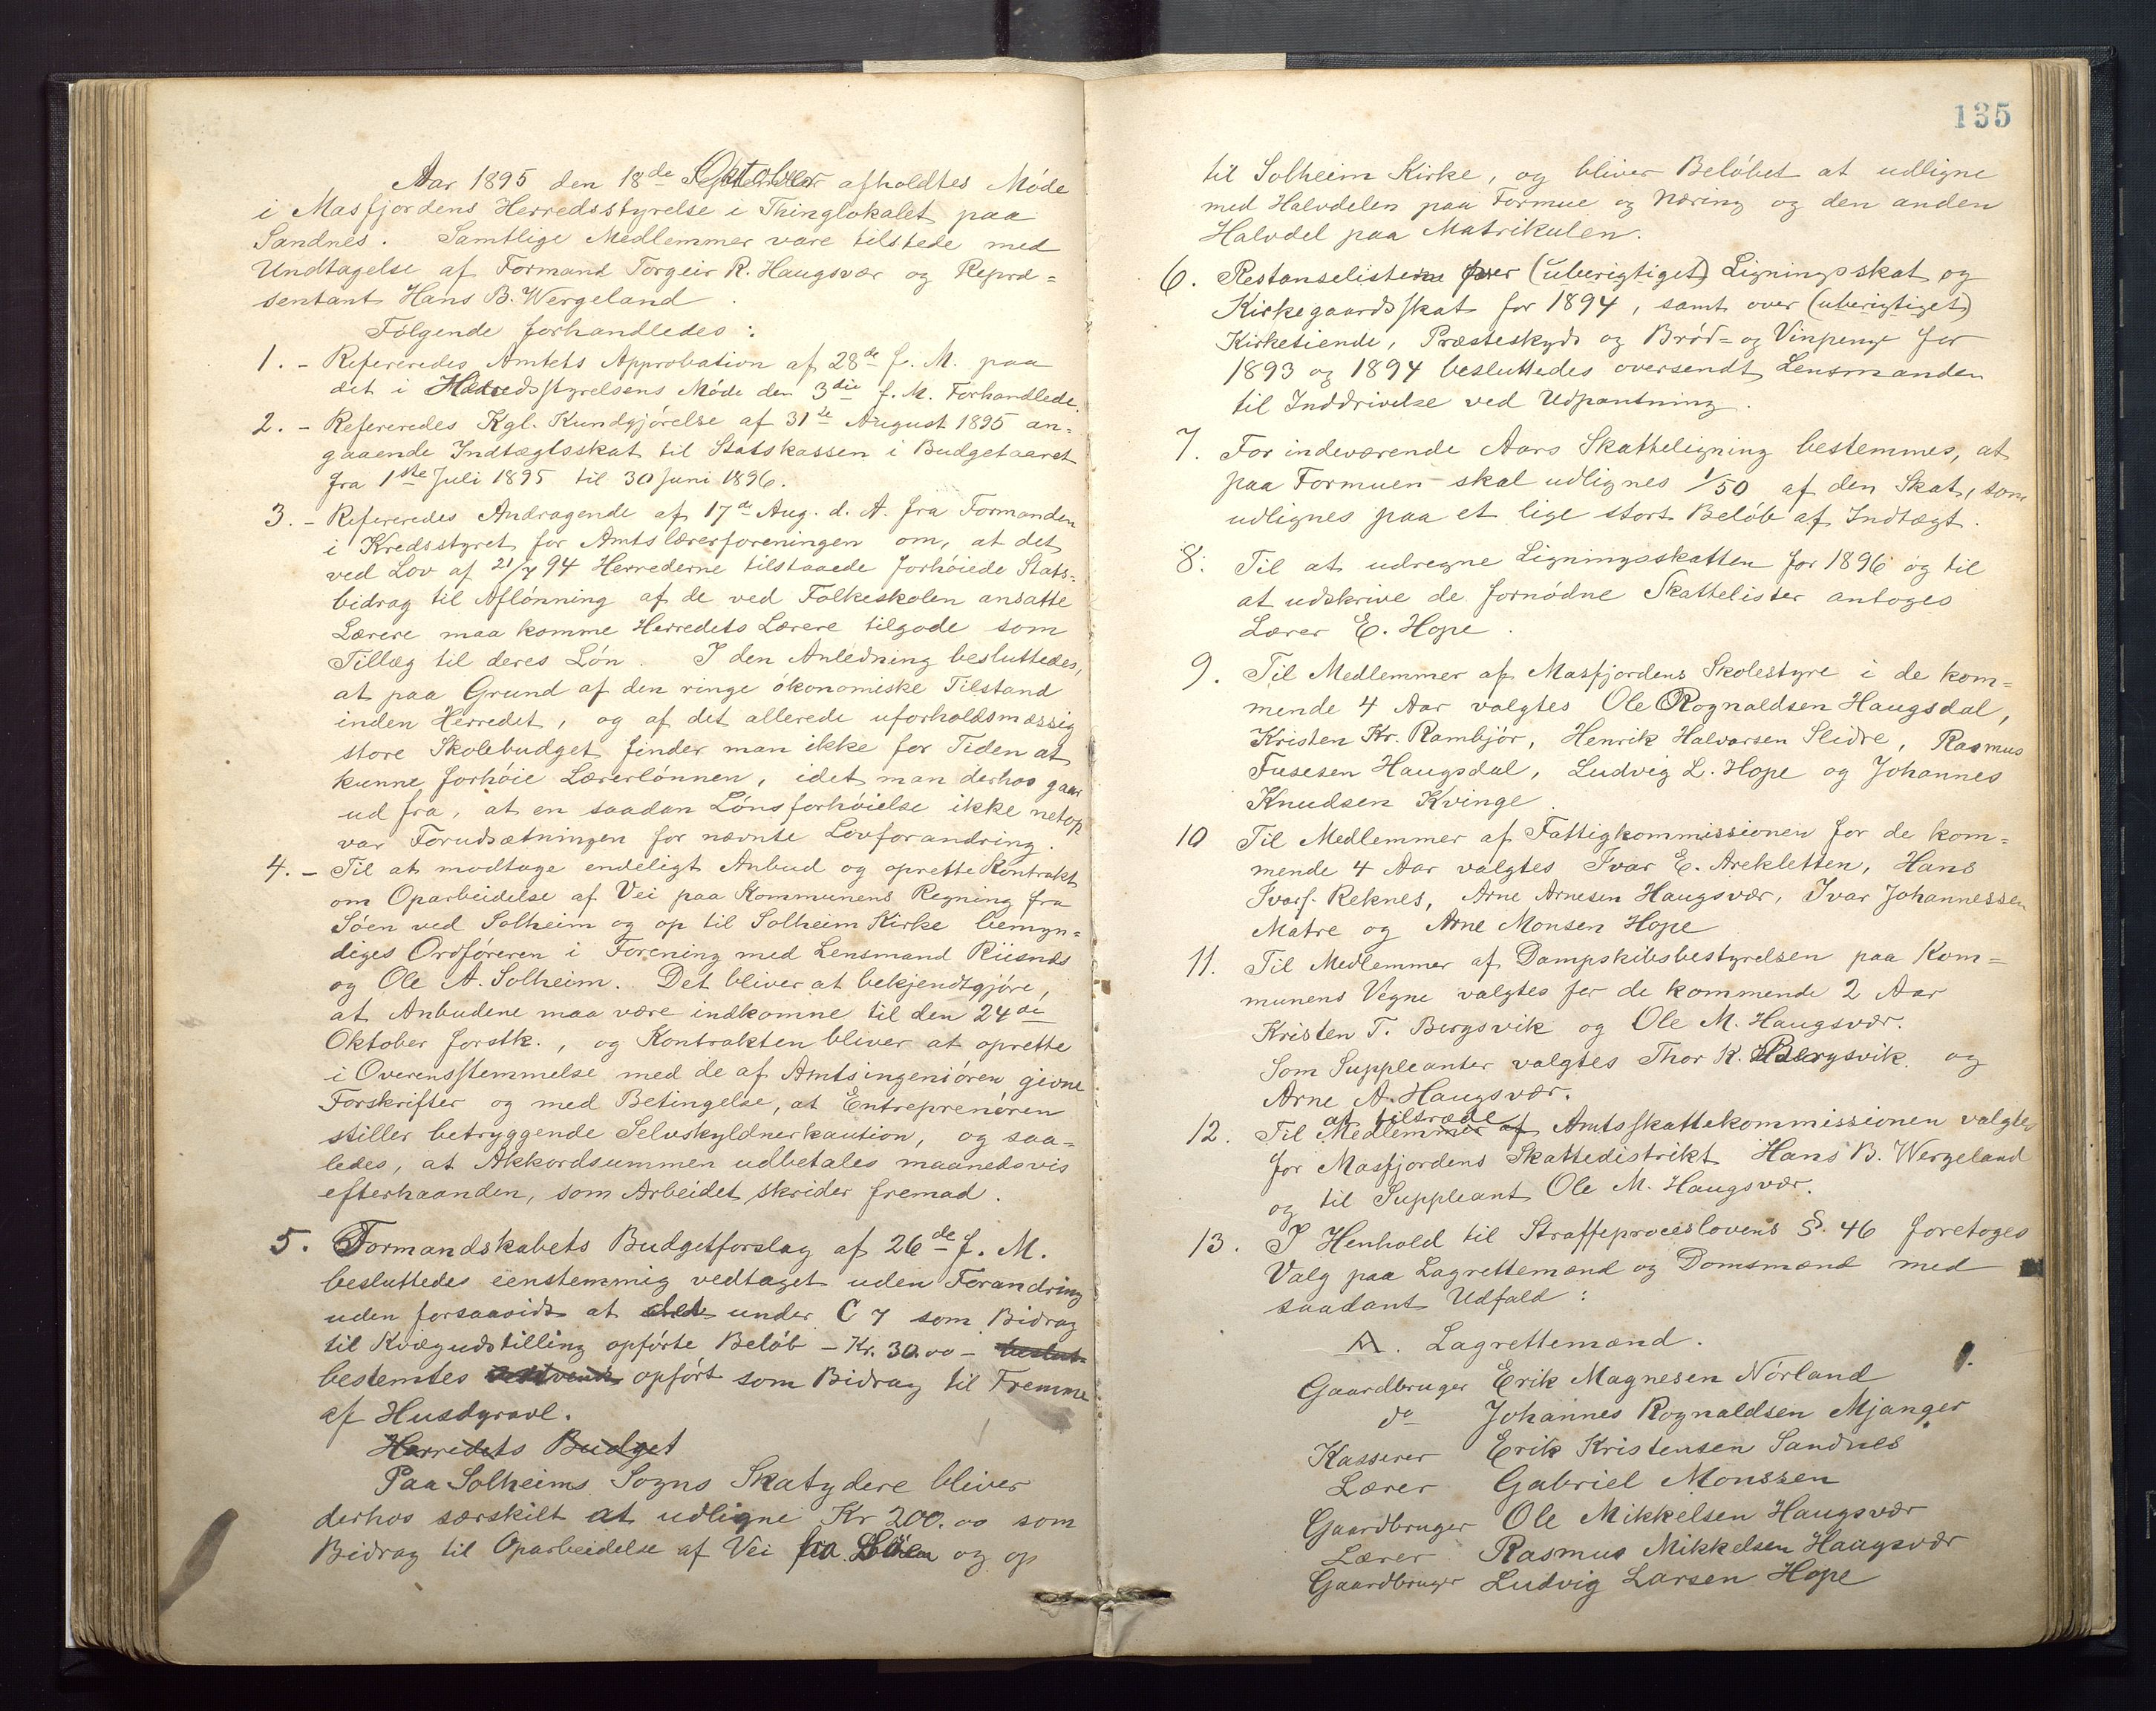 Aar 1895 den 18de Oktober afholdtes Møde
i Masfjordens Herredsstyrelse i Thinglokalet paa
Sandnes. Samtlige Medlemmer vare tilstede med
Undtagelse af Formand Torgeir R. Haugsvær og Repræ=
sentant Hans B. Wergeland.
Følgende forhandledes:
1. - Refereredes Amtets Approbation af 28de f. M. paa
det i Herredsstyrelsens Møde den 3die f. M. Forhandlede.
2. - Refereredes Kgl. Kundgjørelse af 31te August 1895 an=
gaaende Indtægtsskat til Statskassen i Budgetaaret
fra 1ste Juli 1895 til 30 Juni 1896.
3. - Refereredes Andragende af 17de Aug. d. A. fra Formanden
i Kredsstyret for Amtslærerforeningen om, at det
ved Lov af 21/7 94 Herrederne tilstaaede forhøiede Stats=
bidrag til Aflønning af de ved Folkeskolen ansatte
Lærere maa komme Herredets Lærere tilgode som
Tillæg til deres Løn. I den Anledning besluttedes,
at paa Grund af den ringe økonomiske Tilstand
inden Herredet, og af det allerede uforholdsmæssig
store Skolebudget finder man ikke for Tiden at
kunne forhøie Lærerlønnen, idet man derhos gaar
ud fra, at en saadan Lønsforhøielse ikke netop
var Forudsætningen for nævnte Lovforandring.
4. - Til at modtage endeligt Anbud og oprette Kontrakt
om Oparbeidelse af Vei paa Kommunens Regning fra
Søen ved Solheim og op til Solheim Kirke bemyn=
diges Ordføreren i Forening med Lensmand Riisnes
og Ole A. Solheim. Det bliver at bekjendtgjøre,
at Anbudene maa være indkomne til den 24de
Oktober førstk., og Kontrakten bliver at oprette
i Overensstemmelse med de af Amtsingeniøren givne
Forskrifter og med Betingelse, at Entreprenøren
stiller betryggende Selvskyldnerkaution, og saa=
ledes, at Akkordsummen udbetales maanedsvis
efterhaanden, som Arbeidet skrider fremad.
5. Formandskabets Budgetforslag af 26de f. M.
besluttedes eenstemmig vedtaget uden Forandring
uden forsaavidt at det under C 7 som Bidrag
til Kvægudstilling opførte Beløb - Kr. 30.00 - beslut-
bestemtes opført som Bidrag til Fremme
af Husdyravl.
Herredets Budget
Paa Solheims Sogns Skatydere bliver
derhos særskilt at udligne Kr 200.00 som
Bidrag til Oparbeidelse af Vei fra Søen og op
135
til Solheim Kirke, og bliver Beløbet at udligne
med Halvdelen paa Formue og Næring og den anden
Halvdel paa Matrikulen.
6. Restanselisterne over (uberigtiget) Ligningsskat og
Kirkegaardsskat for 1894, samt over (uberigtiget)
Kirketiende, Præsteskyds og Brød= og Vinpenge for
1893 og 1894 besluttedes oversendt Lensmanden
til Inddrivelse ved Udpantning.
7. For indeværende Aars Skatteligning bestemmes, at
paa Formuen skal udlignes 1/50 af den Skat, som
udlignes paa et lige stort Beløb af Indtægt.
8. Til at udregne Ligningsskatten for 1896 og til
at udskrive de fornødne Skattelister antoges
Lærer E. Hope.
9. Til Medlemmer af Masfjordens Skolestyre i de kom=
mende 4 Aar valgtes Ole Rognaldsen Haugsdal,
Kristen Kr. Rambjør, Henrik Halvorsen Sleire, Rasmus
Fusesen Haugsdal, Ludvig L. Hope og Johannes
Knudsen Kvinge.
10 Til Medlemmer af Fattigkommissionen for de kom=
mende 4 Aar valgtes Ivar E. Arekletten, Hans
Ivars. Reknes, Arne Arnesen Haugsvær, Ivar Johannessen
Matre og Arne Monsen Hope
11. Til Medlemmer af Dampskibsbestyrelsen paa Kom=
munens Vegne valgtes for de kommende 2 Aar
Kristen T. Bergsvik og Ole M. Haugsvær.
Som Suppleanter valgtes Thor K. Bergsvik og
Arne A. Haugsvær.
at tiltræde
12. Til Medlemmer af Amtsskattekommissionen valgtes
for Masfjordens Skattedistrikt Hans B. Wergeland
og til Suppleant Ole M. Haugsvær.
13. I Henhold til Straffeproceslovens §. 46 foretoges
Valg paa Lagrettemænd og Domsmænd med
saadant Udfald:
A. Lagrettemænd.
Gaardbruger Erik Magnesen Nørland
do Johannes Rognaldsen Mjanger
Kasserer Erik Kristensen Sandnes
Lærer Gabriel Monssen
Gaardbruger Ole Mikkelsen Haugsvær
Lærer Rasmus Mikkelsen Haugsvær
Gaardbruger Ludvig Larsen Hope